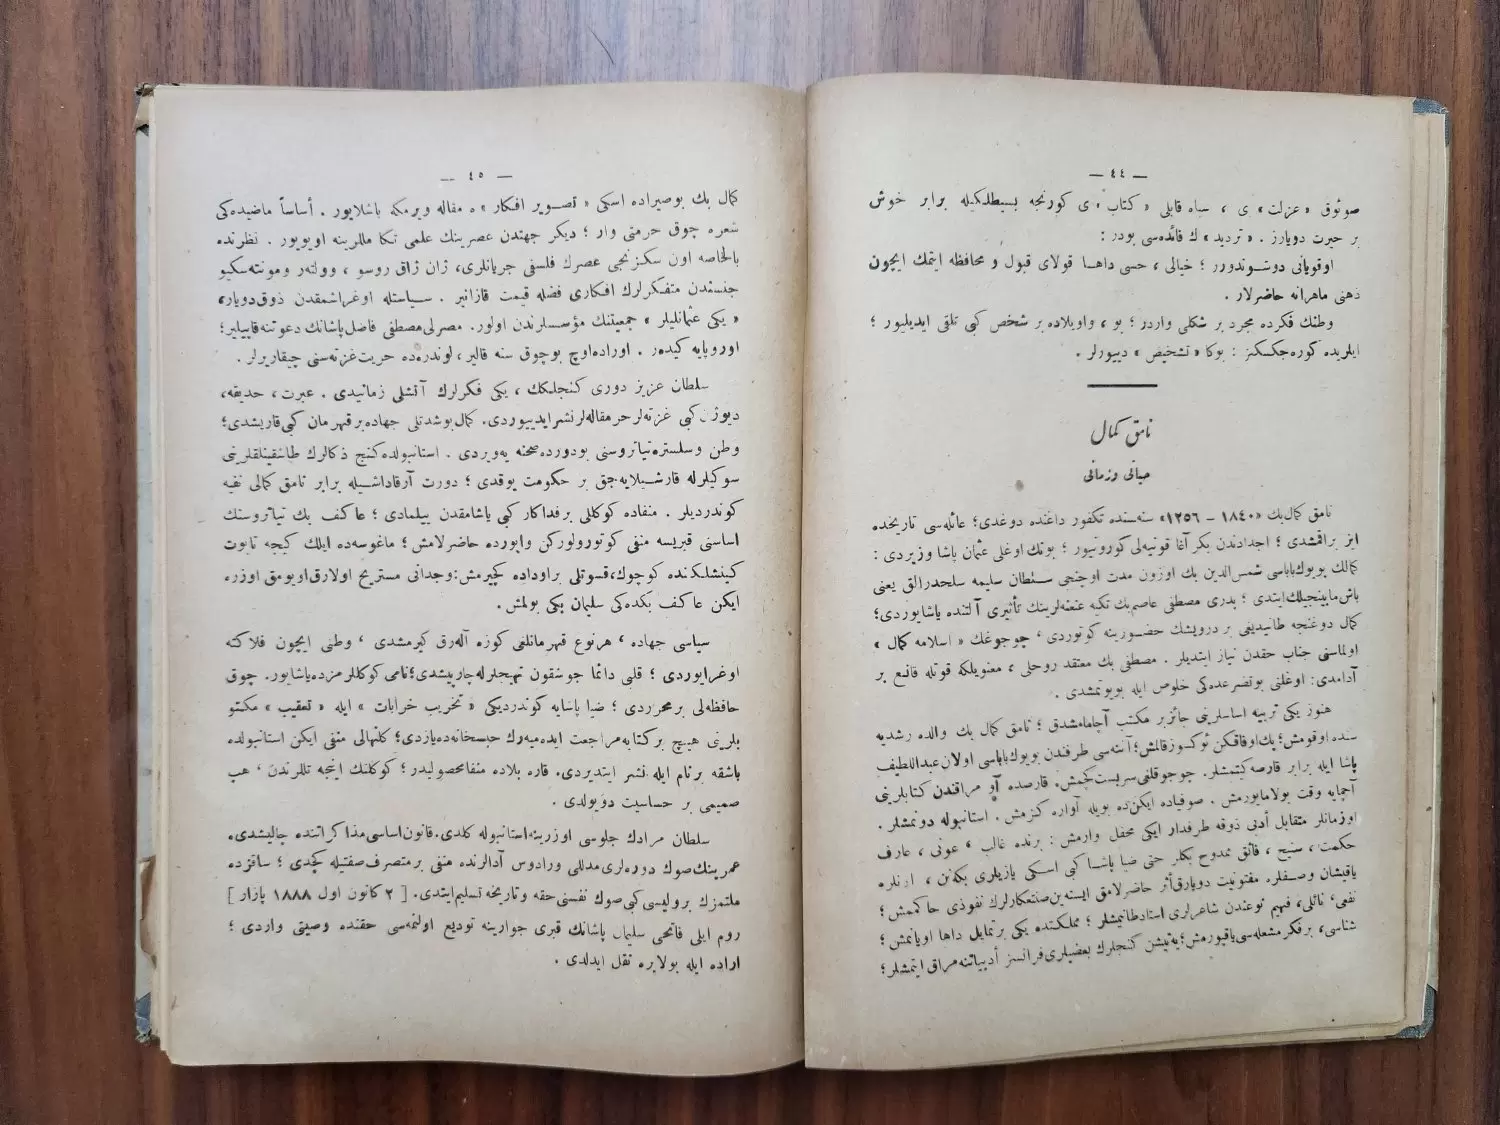 — ٤٤ —
صوئوق «عزلت» ی ، سیاه قابلی «كتاب» ی كورنجه بسیطلكیله برابر خوش
بر حیرت دویارز . «تردید» ك فائده‌سی بودر :
اوقویانی دوشوندورر ؛ خیالی ، حسی داها قولای قبول و محافظه ایتمك ایچون
ذهنی ماهرانه حاضرلار .
وطنك فكرده مجرد بر شكلی واردر ؛ بو ، واویلاده بر شخص كبی تلقی ایدیلیور ؛
ایلریده كوره‌جكسكز : بوكا «تشخیص» دییورلر .
نامق كمال
حیاتی وزمانی
نامق كمال‌بك «١٨٤٠ – ١٢٥٦» سنه‌سنده تكفور داغنده دوغدی ؛ عائله‌سی تاریخده
ایز براقمشدی ؛ اجدادندن بكر آغا قونیه‌لی كورونیور ؛ بونك اوغلی عثمان پاشا وزیردی :
كمالك بویوك‌باباسی شمس‌الدین بك اوزون مدت اوچنجی سلطان سلیمه سلحدرالق یعنی
باش‌مابینجیلك‌ایتدی ؛ پدری مصطفی عاصم‌بك تكیه عنعنه‌لرینك تأثیری آلتنده یاشایوردی ؛
كمال دوغنجه طانیدیغی بر درویشك حضورینه كوتوردی ، چوجوغك «اسلامه كمال»
اولماسنی جناب حقدن نیاز ایتدیلر . مصطفی بك معتقد روحلی ، معنویلكه قوتله قانع بر
آدامدی : اوغلنی بوتضرعده‌كی خلوص ایله بویوتمشدی .
هنوز یكی تربیه اساسلرینی جائز بر مكتب آچامامشدق ؛ نامق كمال بك والده رشدیه
سنده اوقومش ؛ پك‌اوفاقكن ئوكسوزقالمش ؛ آننه‌سی طرفندن بویوك‌باباسی اولان عبداللطیف
پاشا ایله برابر قارصه كیتمشلر. چوجوقلغی سربست كچمش. قارصده آو مراقندن كتابلرینی
آچمایه وقت بولامایورمش . صوفیاده ایكن‌ده بویله آواره كزمش . استانبوله دونمشلر .
اوزمانلر متقابل أدبی ذوقه طرفدار ایكی محفل وارمش : برنده غالب ، عونی ، عارف
حكمت ، سنیح ، فائق ممدوح بكلر حتی ضیا پاشا كبی اسكی یازیلری بكه‌نن ،
یاقیشان وصفلره مفتونیت دویارق‌أثر حاضرلامق ایسته‌ین‌صنعتكارلرك نفوذی حاكممش ؛
نفعی، نائلی، فهیم نوعندن شاعرلری استادطانیمشلر ؛ مملكتده یكی برتمایل داها اویانمش ؛
شناسی، برفكر مشعله‌سی‌یاقیورمش ؛ یه‌تیشن كنجلرك بعضیلری‌فرانسز أدبیاتنه‌مراق ایتمشلر ؛
— ٤٥ —
كمال بك بوصیراده اسكی «تصویر افكار» ه مقاله ویرمكه باشلایور . أساساً ماضیده‌كی
شعره چوق حرمتی وار ؛ دیكر جهتدن عصرینك علمی تكاملارینه اویویور . نظرنده
بالخاصه اون سكزنجی عصرك فلسفی جریانلری، ژان ژاق روسو ، وولتر ومونته‌سكیو
جنسندن متفكرلرك افكاری فضله قیمت قازانیر . سیاستله اوغراشمقدن ذوق‌دویار،
«یكی عثمانلیلر» جمعیتنك مؤسسلرندن اولور. مصرلی‌مصطفی فاضل‌پاشانك دعوتنه‌قاپیلیر ؛
اوروپایه كیده‌ر . اوراده‌اوچ بوچوق سنه قالیر، لوندره‌ده حریت‌غزته‌سنی چیقاریرلر .
سلطان عزیز دوری كنجلكك ، یكی فكرلرك آتشلی زمانیدی . عبرت ، حدیقه،
دیوژن كبی غزته‌لر حر مقاله‌لر نشر ایدییوردی. كمال‌بوشدتلی جهاده‌برقهرمان كبی‌قاریشدی ؛
وطن وسلستره‌تیاتروسنی بودورده‌صحنه یه‌ویردی . استانبولده‌كنج ذكالرك طاشقینلقلرینی
سوكیلرله قارشیلایه‌جق بر حكومت یوقدی ؛ دورت آرقاداشیله برابر نامق كمالی نفیه
كوندردیلر . منفاده كوكللی برفداكار كبی یاشامقدن بیلمادی ؛ عاكف بك تیاتروسنك
اساسنی قبریسه منفی كوتورولوركن واپورده حاضرلامش ؛ ماغوسه‌ده ایلك كیجه تابوت
كینشلكنده كوچوك، قسوتلی براوداده كچیرمش: وجدانی مستریح اولارق‌اویومق اوزره
ایكن عاكف بكده‌كی سلیمان بكی بولمش .
سیاسی جهاده ، هرنوع قهرمانلغی كوزه آله‌رق كیرمشدی ، وطنی ایچون فلاكته
اوغرایوردی ؛ قلبی دائما جوشقون تهیجلرله چارپیشدی ؛ نامی كوكللرمزده‌یاشایور. چوق
حافظه‌لی برمحرردی ؛ ضیا پاشایه كوندردیكی «تخریب خرابات» ایله «تعقیب» مكتو
بلرینی هیچ بركتابه‌مراجعت ایده‌میه‌رك حبسخانه‌ده‌یازدی ؛ كلنهالی منفی ایكن استانبولده
باشقه برنام ایله‌ نشر ایتدیردی. قاره بلاده منفامحصولیدر ؛ كوكلنك اینجه تللرندن ، هپ
صمیمی بر حساسیت دویولدی .
سلطان مرادك جلوسی اوزرینه‌استانبوله كلدی. قانون‌اساسی مذاكراتنده چالیشدی.
عمرینك‌صوك دوره‌لری‌مدللی ورادوس آدالرنده منفی برمتصرف‌صفتیله كچدی ؛ ساقزده
ملتمزك برولیسی كبی‌صوك نفسنی حقه وتاریخه تسلیم‌ایتدی. [ ٢ كانون اول ١٨٨٨ پازار ]
روم ایلی فاتحی سلیمان پاشانك قبری جوارینه تودیع اولنمه‌سی حقنده وصیتی واردی ؛
اراده ایله بولایره نقل ایدلدی .